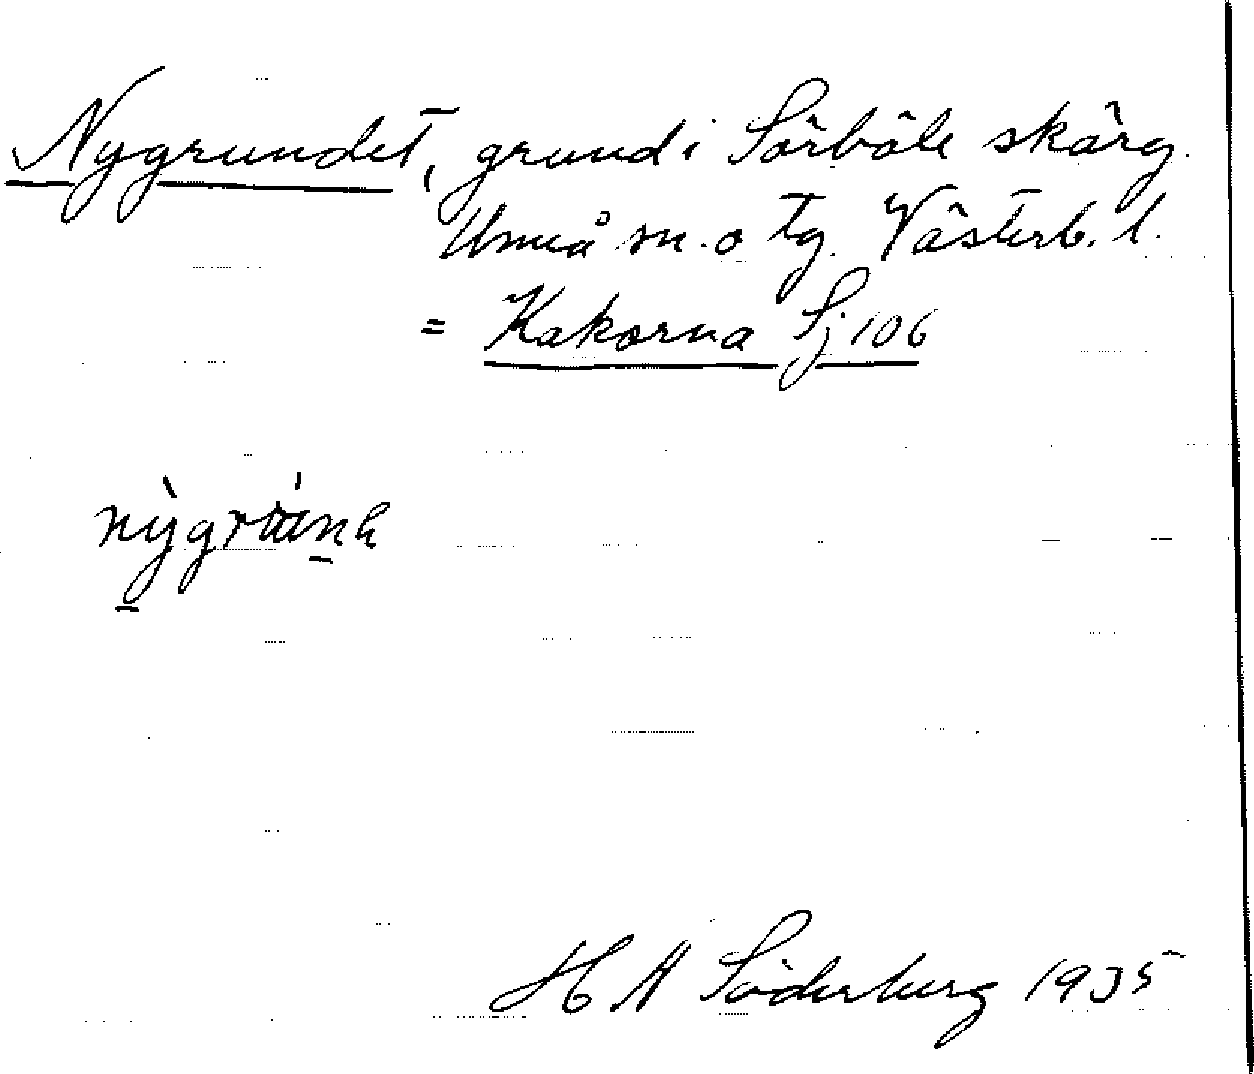 Nygrundet, grund i Sörböle skärg.
Umeå sn. o tg. Västerb. l.
= Kakorna Sj 106
H A Söderberg 1935